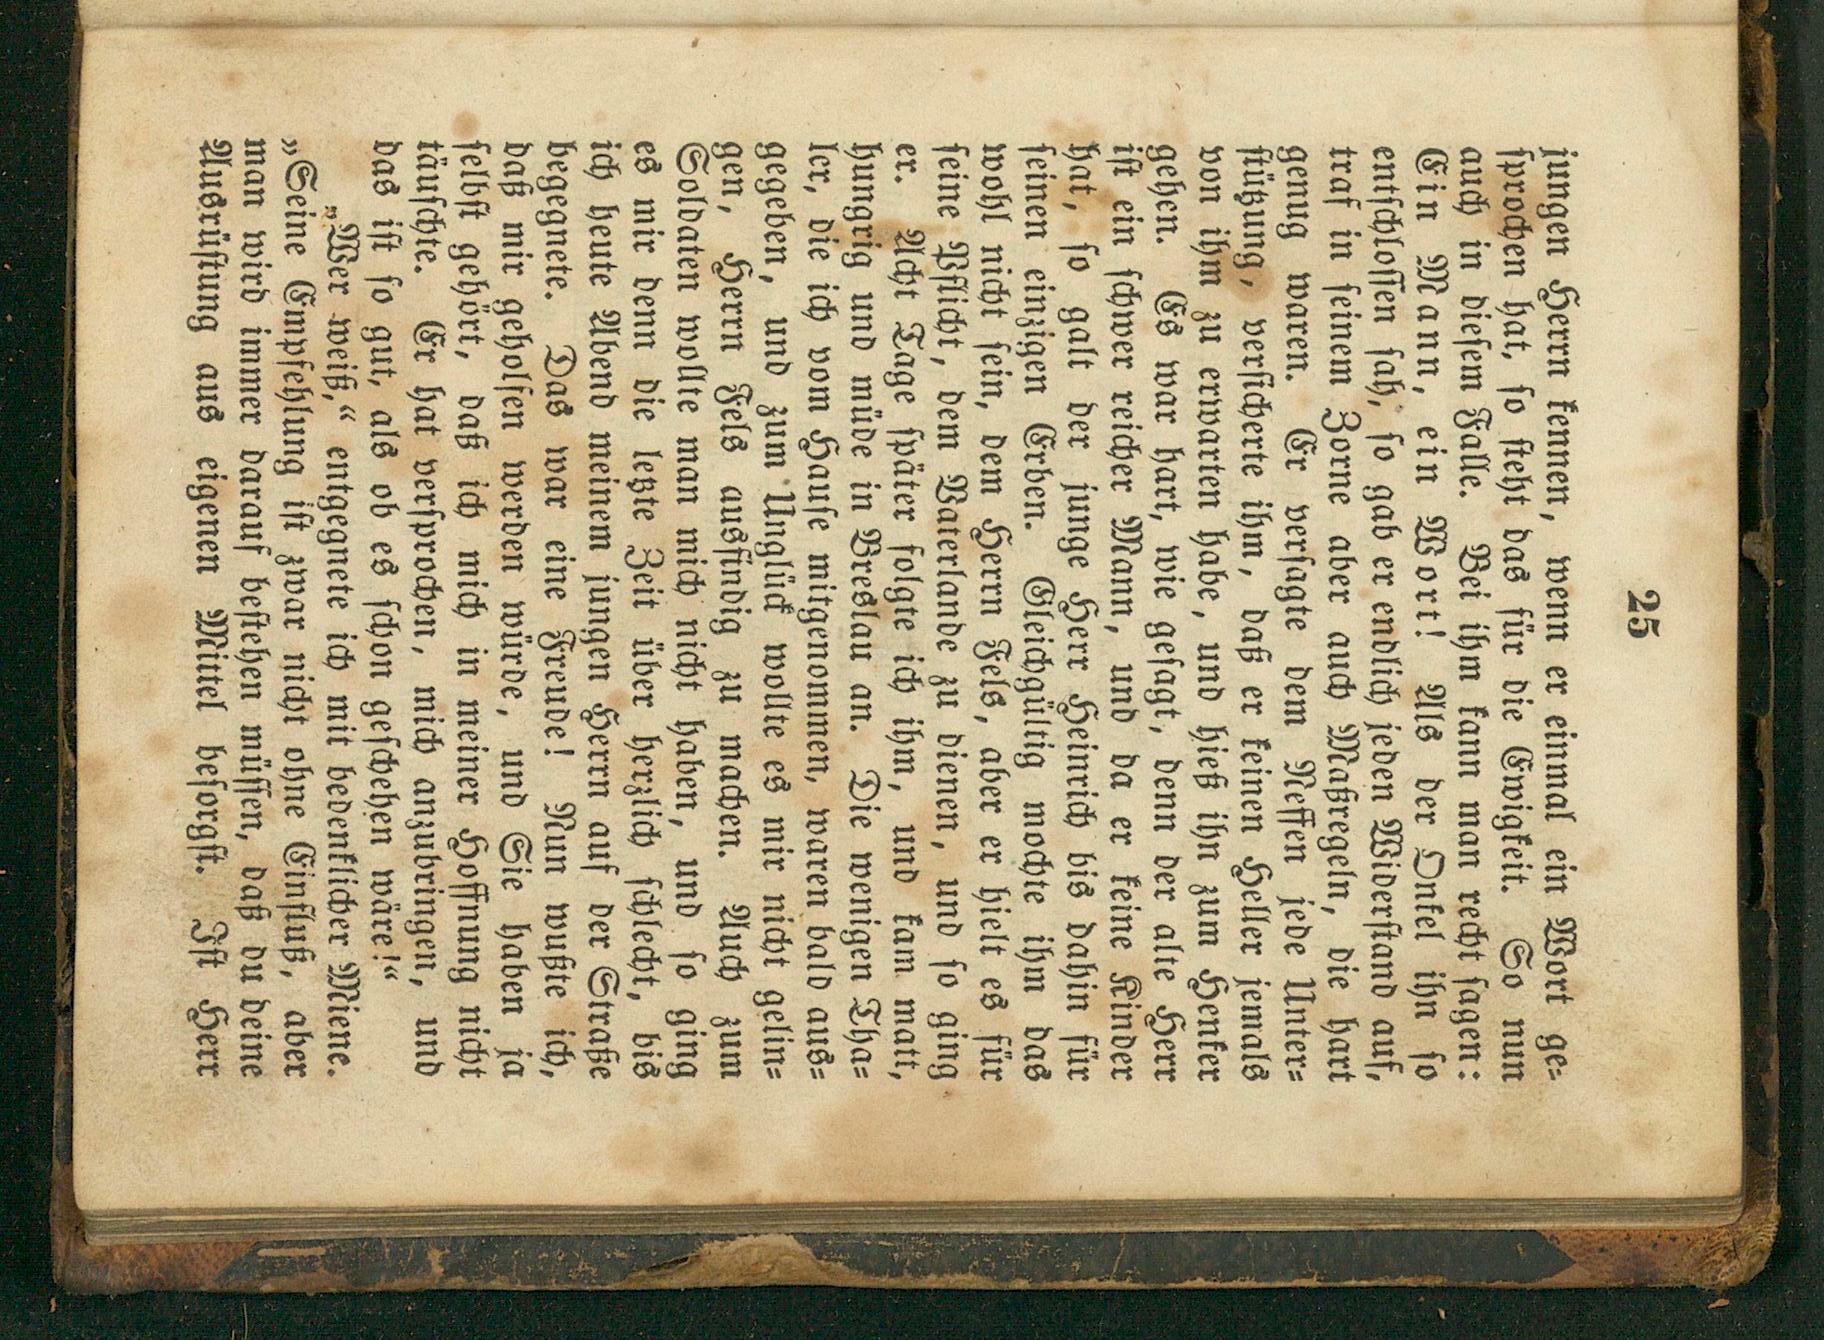 25
jungen Herrn kennen, wenn er einmal ein Wort ge=
sprochen hat, so steht das für die Ewigkeit. So nun
auch in diesem Falle. Bei ihm kann man recht sagen:
Ein Mann, ein Wort! Als der Onkel ihn so
entschlossen sah, so gab er endlich jeden Widerstand auf,
traf in seinem Zorne aber auch Maßregeln, die hart
genug waren. Er versagte dem Neffen jede Unter=
stützung, versicherte ihm, daß er keinen Heller jemals
von ihm zu erwarten habe, und hieß ihn zum Henker
gehen. Es war hart, wie gesagt, denn der alte Herr
ist ein schwer reicher Mann, und da er keine Kinder
hat, so galt der junge Herr Heinrich bis dahin für
seinen einzigen Erben. Gleichgültig mochte ihm das
wohl nicht sein, dem Herrn Fels, aber er hielt es für
seine Pflicht, dem Vaterlande zu dienen, und so ging
er. Acht Tage später folgte ich ihm, und kam matt,
hungrig und müde in Breslau an. Die wenigen Tha=
ler, die ich vom Hause mitgenommen, waren bald aus=
gegeben, und zum Unglück wollte es mir nicht gelin=
gen, Herrn Fels ausfindig zu machen. Auch zum
Soldaten wollte man mich nicht haben, und so ging
es mir denn die letzte Zeit über herzlich schlecht, bis
ich heute Abend meinem jungen Herrn auf der Straße
begegnete. Das war eine Freude! Nun wußte ich,
daß mir geholfen werden würde, und Sie haben ja
selbst gehört, daß ich mich in meiner Hoffnung nicht
täuschte. Er hat versprochen, mich anzubringen, und
das ist so gut, als ob es schon geschehen wäre!“
„Wer weiß,“ entgegnete ich mit bedenklicher Miene.
„Seine Empfehlung ist zwar nicht ohne Einfluß, aber
man wird immer darauf bestehen müssen, daß du deine
Ausrüstung aus eigenen Mittel besorgst. Ist Herr